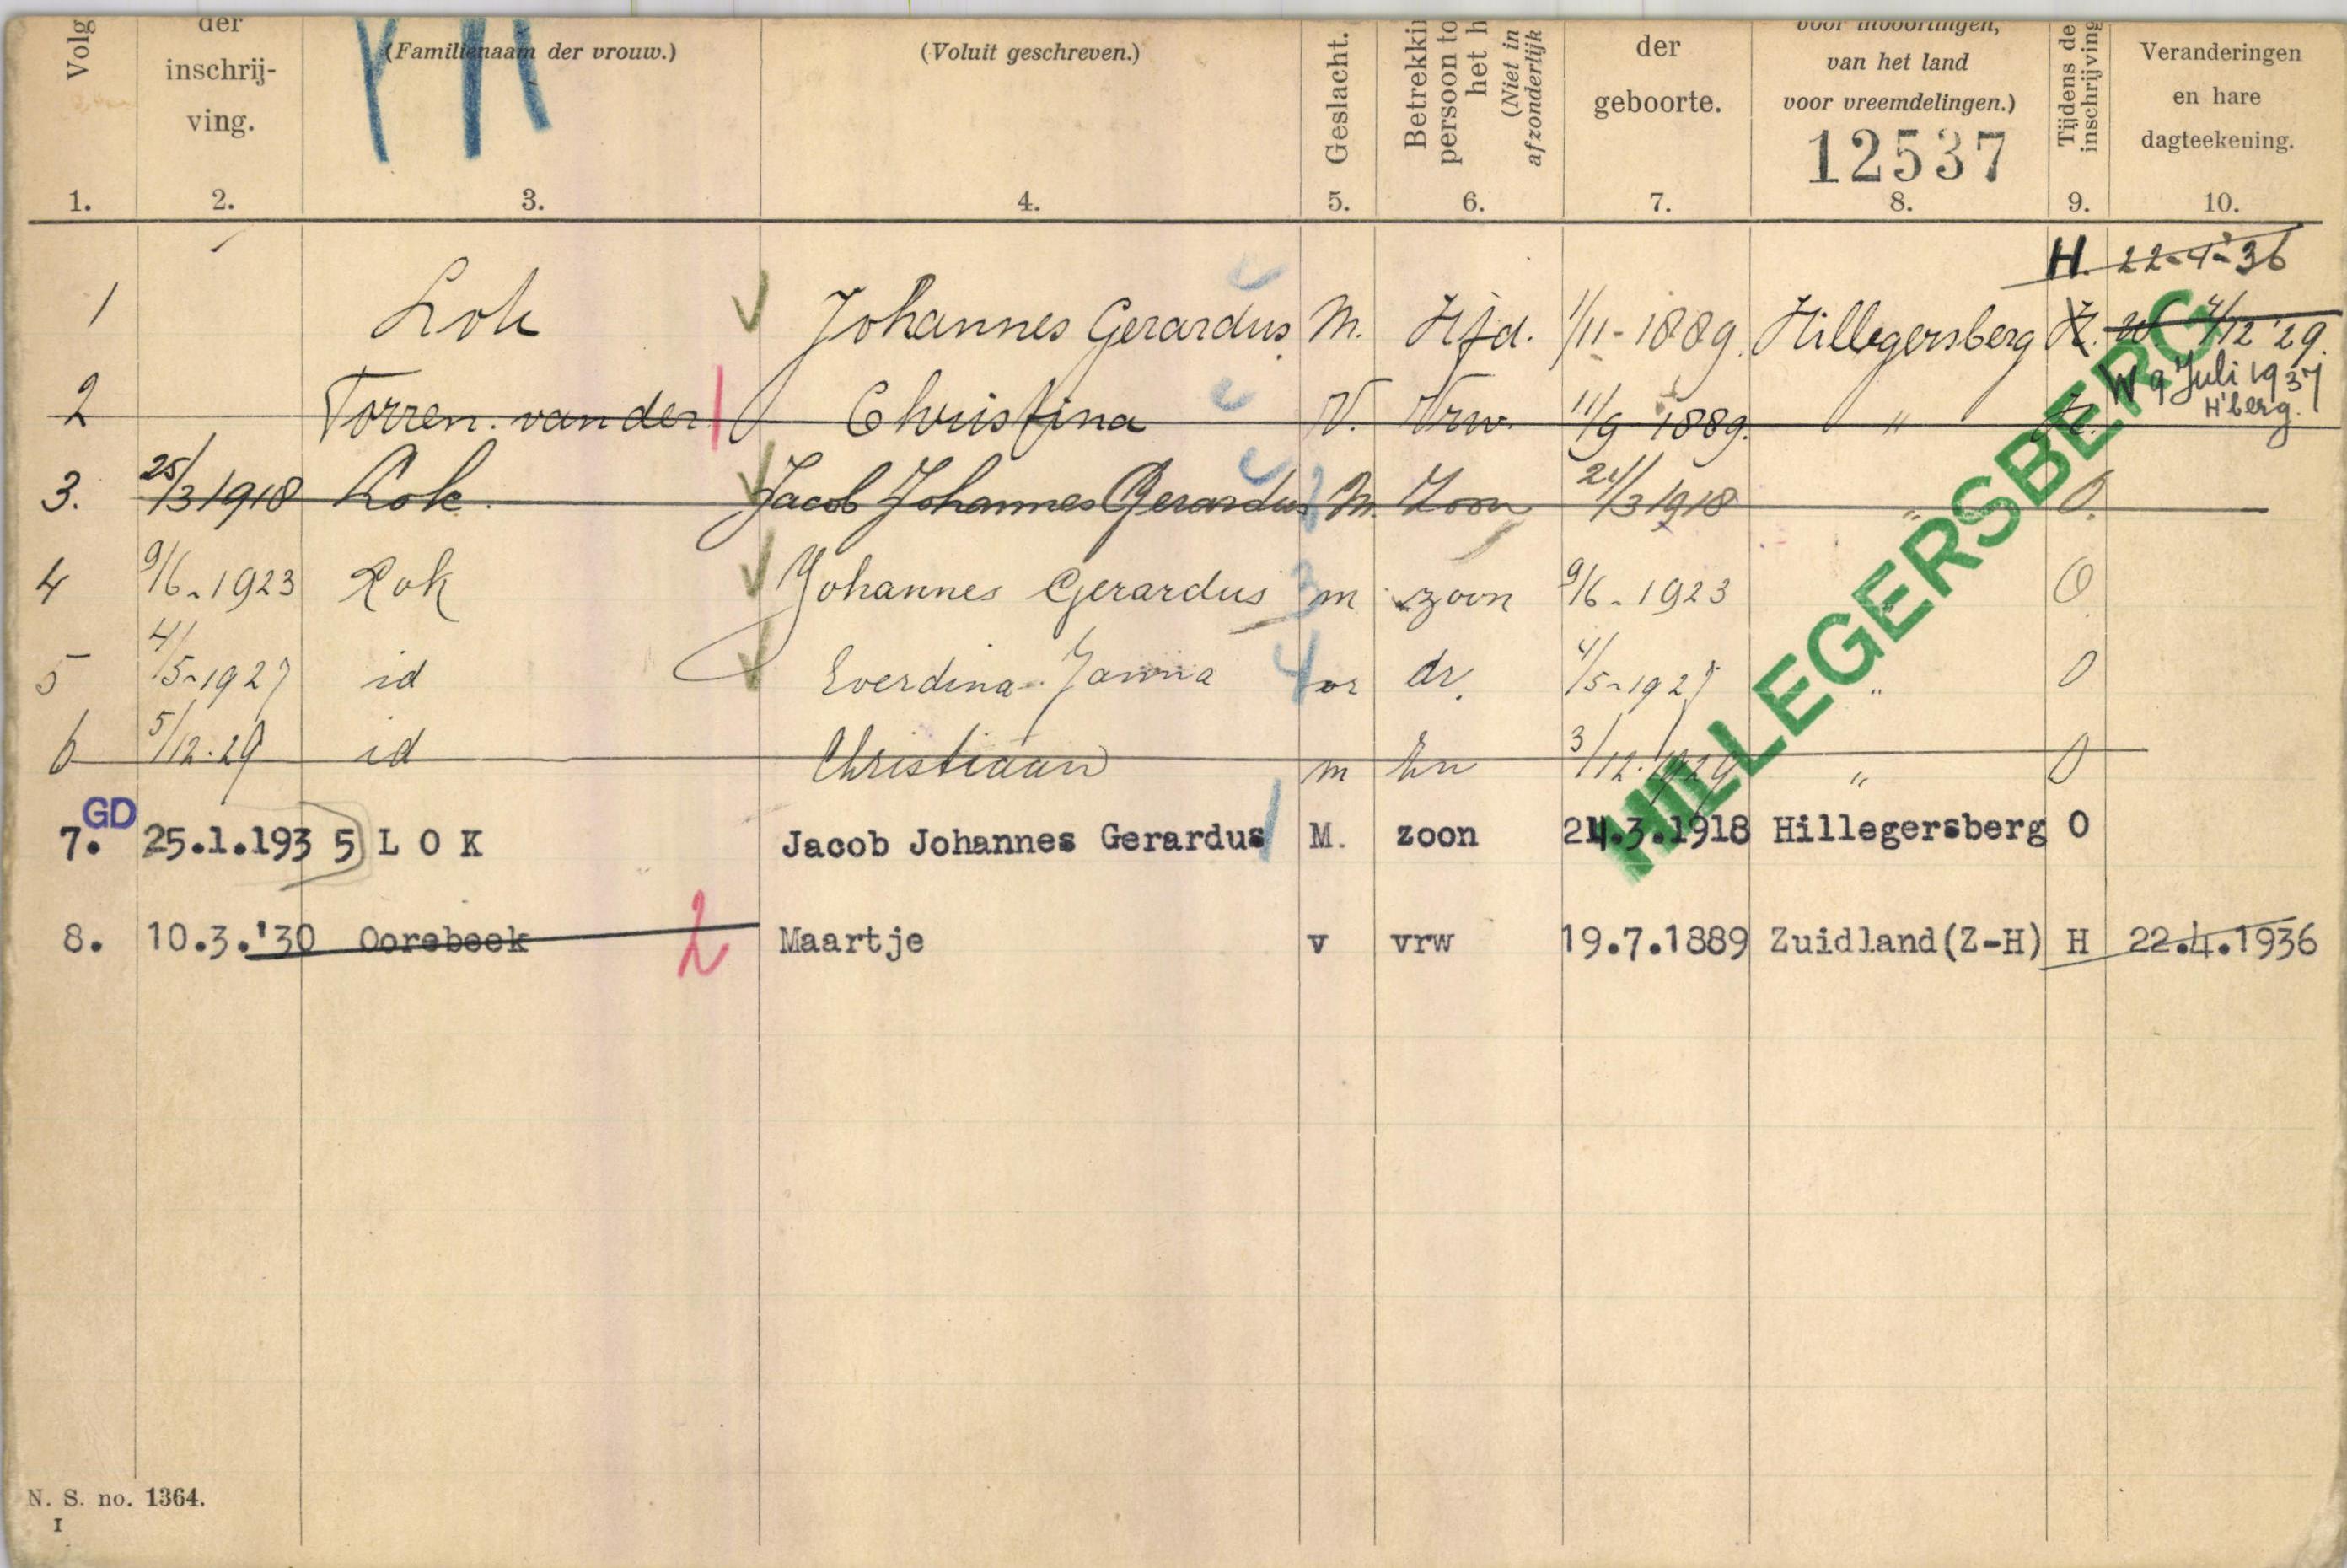 Volg
der
inschrij-
ving.
(Familienaam der vrouw.)
(Voluit geschreven.)
Geslacht.
Betrekki
persoon to
het h
(Niet in
afzonderlijk
der
geboorte.
van het land
voor vreemdelingen.)
12537
Tijdens de
inschrijving
Veranderingen
en hare
dagteekening.
1. 2. 3. 4. 5. 6. 7. 8. 9. 10.
H. 22-4-'36
1 Lok Johannes Gerardus M. Hfd. 1/11-1889. Hillegersberg H. W 4/12 '29.
W 9 Juli 1937
H'berg.
2 Torren. van der Christina V. Vrw. 11/9 1889. "
3. 25/3 1918 Lok. Jacob Johannes Gerardus M. Zoon 24/3 1918 " O.
4 9/6-1923 Lok Johannes Gerardus 3 m zoon 9/6-1923 " O.
5 4/5-1927 id Everdina Janna 4 vr dr. 4/5-1927 " O
6 5/12.29 id Christiaan m Zn 3/12.1929 " O
GD
7. 25.1.193 5 LOK Jacob Johannes Gerardus M. zoon 24.3.1918 Hillegersberg O
8. 10.3.'30 Oorebeek 2 Maartje v vrw 19.7.1889 Zuidland(Z-H) H 22.4.1936
HILLEGERSBERG
N. S. no. 1364.
I